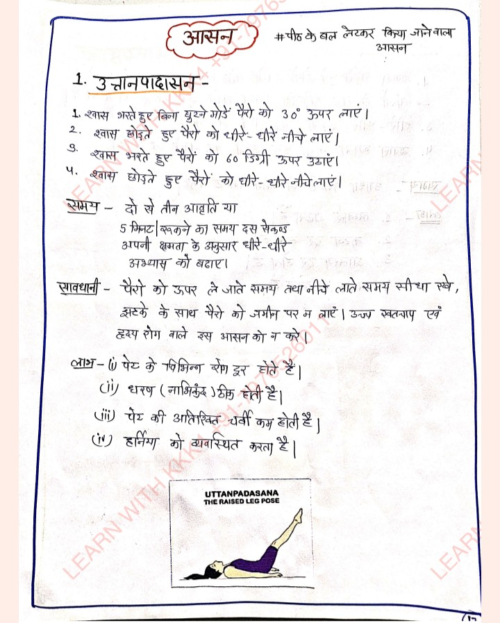 आसन
# पीठ के बल लेटकर किया जाने वाला
आसन
1. उत्तानपादासन -
1. श्वास भरते हुए बिना घुटने मोडें पैरो को 30° ऊपर लाएं।
2. श्वास छोड़ते हुए पैरो को धीरे-धीरे नीचे लाएं।
3. श्वास भरते हुए पैरों को 60 डिग्री ऊपर उठाएं।
४. श्वास छोड़ते हुए पैरों को धीरे-धीरे नीचे लाएं।
समय - दो से तीन आवृति या
5 मिनट | रूकने का समय दस सेकण्ड
अपनी क्षमता के अनुसार धीरे-धीरे
अभ्यास को बढाए।
सावधानी - पैरो को ऊपर ले जाते समय तथा नीचे लाते समय सीधा रखे,
झटके के साथ पैरो को जमीन पर न लाएं। उच्च रक्तचाप एवं
हृदय रोग वाले इस आसन को न करे।
लाभ - (i) पेट के विभिन्न रोग दूर होते है।
(ii) धरण (नाभिकंद) ठीक होती है।
(iii) पेट की अतिरिक्त चर्वी कम होती है।
(iv) हर्निया को व्यवस्थित करता है।
UTTANPADASANA
THE RAISED LEG POSE
LEARN WITH KKK